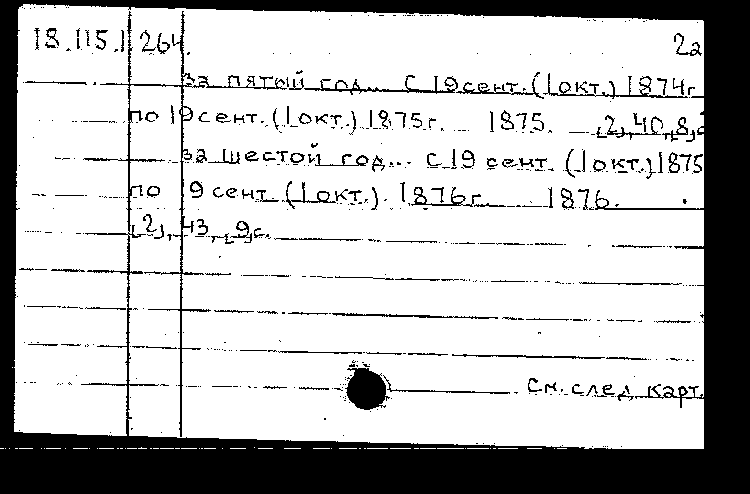 18.115.1.264. 2а
за пятый год... С 19 сент. (1 окт.) 1874г
по 19 сент. (1 окт.) 1875г. 1875. [2], 40, [8] с
за шестой год... с 19 сент. (1 окт.) 1875
по 19 сент. (1 окт.). 1876г. 1876.
[2], 43, [9] с.
См. след. карт.